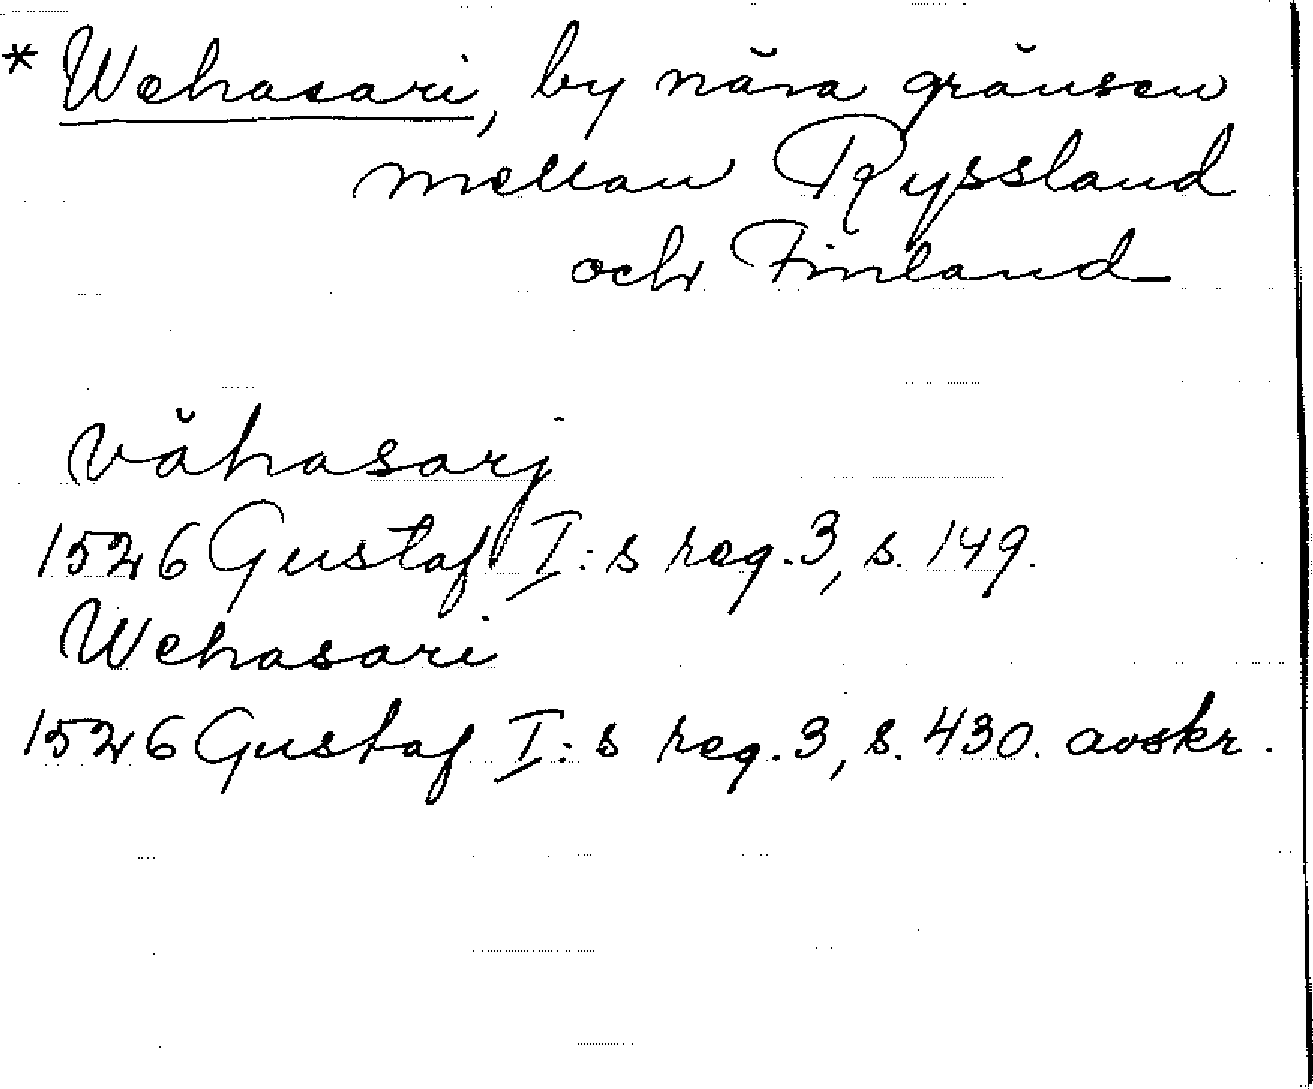 * Wehasari, by nära gränsen
mellan Ryssland
och Finland
vähasarj
1526 Gustaf I:s reg. 3, s. 149.
Wehasari
1526 Gustaf I:s reg. 3, s. 430. avskr.